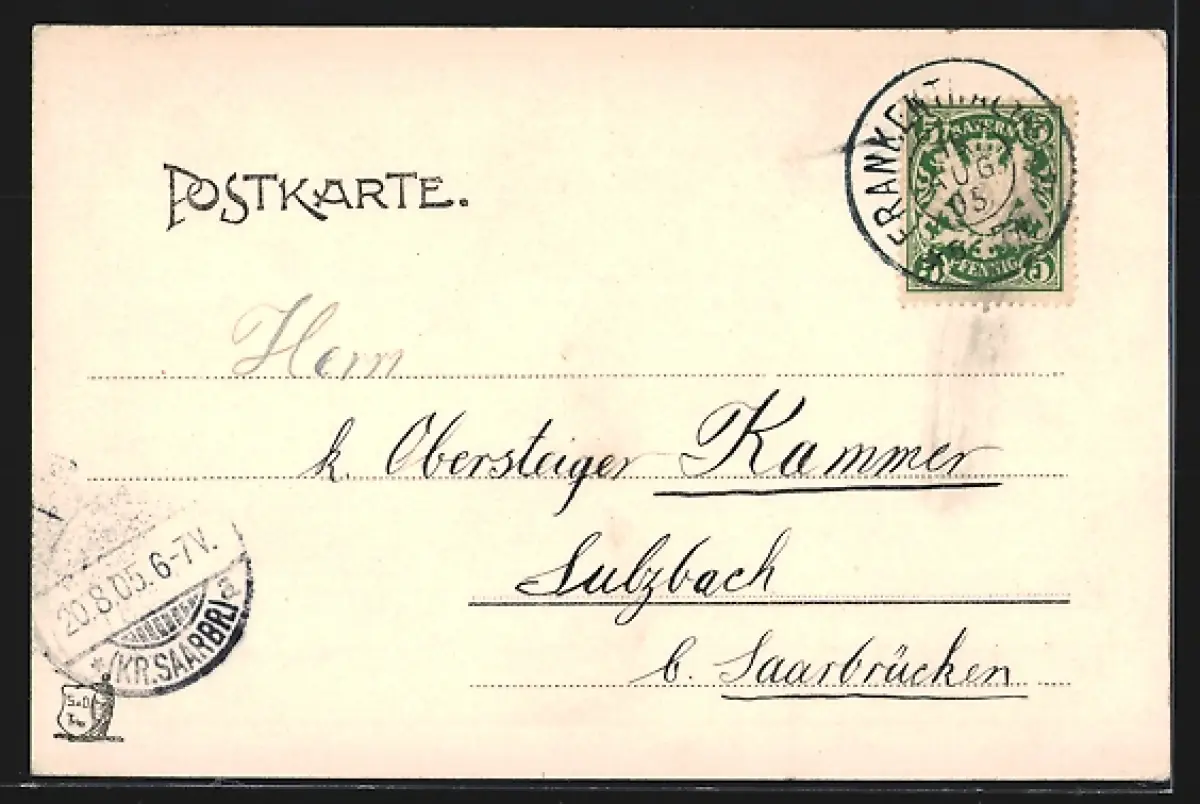 POSTKARTE.
BAYERN
5 5
AUG.
05.
PFENNIG
5 5
Herrn
k. Obersteiger Kammer
Sulzbach
b. Saarbrücken
20.8.05. 6-7V.
*(KR.SAARBR.)a